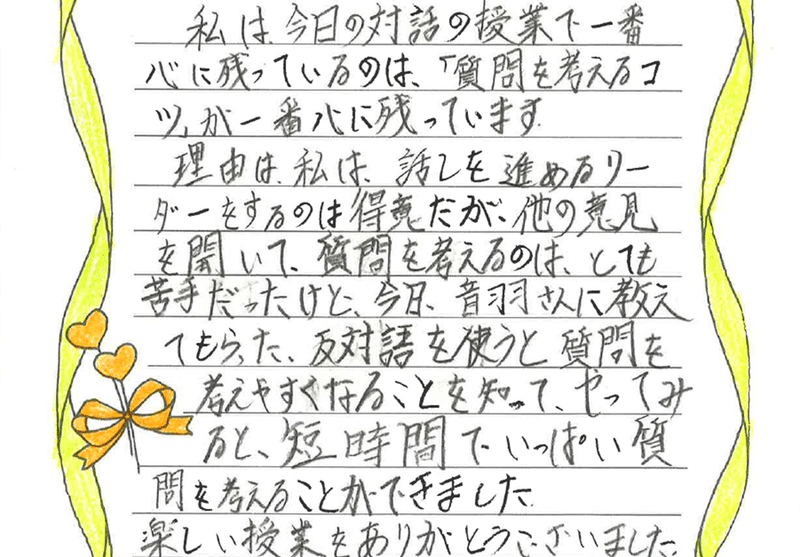 私は、今日の対話の授業で一番
心に残っているのは、「質問を考えるコ
ツ」が一番心に残っています
理由は、私は、話しを進めるリー
ダーをするのは得意だが、他の意見
を開いて、質問を考えるのは、とても
苦手だったけど、今日、音羽さんに教え
てもらった、反対語を使うと質問を
考えやすくなることを知って、やってみ
ると、短時間でいっぱい質
問を考えることができました
楽しい授業をありがとうございました